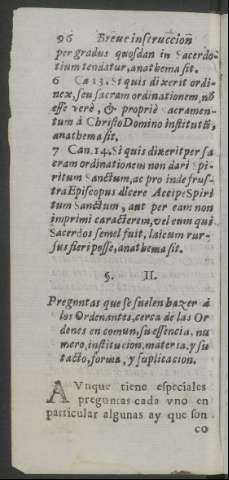 96 Breue instruccion
per gradus quosdan in Sacerdo
tium tendatur, anathema sit.
6 Ca 13. Si quis dixerit ordi-
nex, seu sacram ordinationem, nō
esse verè, & propriè Sacramen-
tum à Christo Domino institutū,
anathema sit.
7 Can. 14. Si quis dixerit per sa
cram ordinationem non dari Spi-
ritum Sanctum, ac pro inde frus-
tra Episcopus dicere Accipe Spiri
tum Sanctum, aut per eam non
imprimi caracterem, vel eum qui
Sacerdos semel fuit, laicum rur-
sus fieri posse, anathema sit.
§. II.
Preguntas que se suelen hazer á
los Ordenantes, cerca de las Or
denes en comun, su essencia, nu
mero, institucion, materia, y su
tacto, forma, y suplicacion.
AVnque tiene especiales
preguntas cada vno en
particular algunas ay que son
co